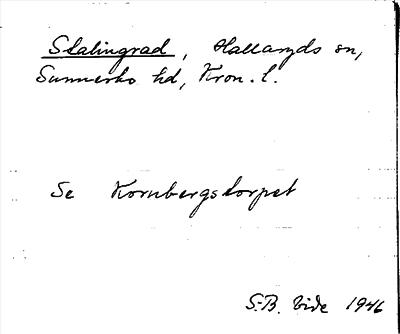 Stalingrad, Hallaryds sn,
Sunnerbo hd, Kron. l.
Se Kornbergstorpet
S.-B. Vide 1946